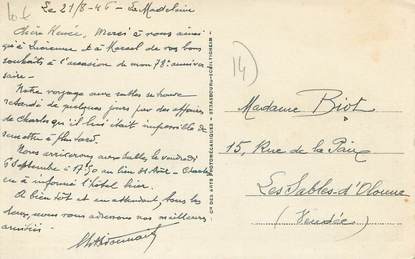 Le 21/8-46 - La Madeleine
Chère Renée, Merci à vous ainsi
qu'à Lucienne et à Marcel de vos bons
souhaits à l'occasion de mon 78e anniver
saire -
Notre voyage avec se trouve
retardé de quelques jours par des affaires
de Charles qu'il lui était impossible de
remettre à plus tard.
Nous arriverons le vendredi
6 Septembre à 17.50 au lieu Charles
en a informé l'hôtel hier.
A bientôt et en attendant, tous les
deux, nous vous adressons nos meilleurs
amitiés
Cie DES ARTS PHOTOMÉCANIQUES - STRASBOURG-SCHILTIGHEIM
14
Madame Biot
15, Rue de la Paix
Les Sables-d'Olonne
(Vendée)